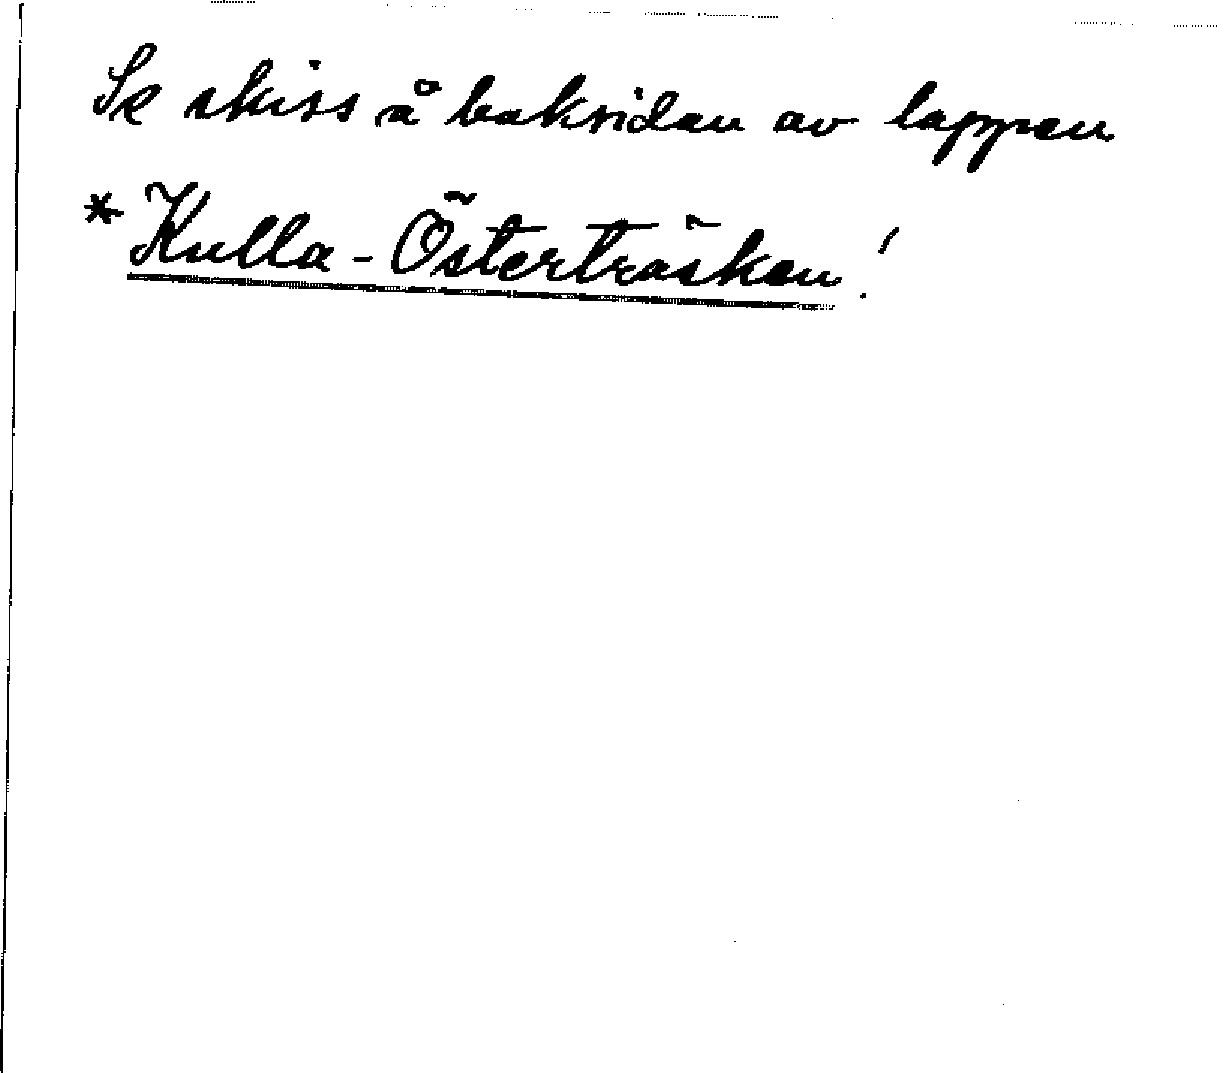 Se skiss å baksidan av lappen
* Kulla-Österträsken!